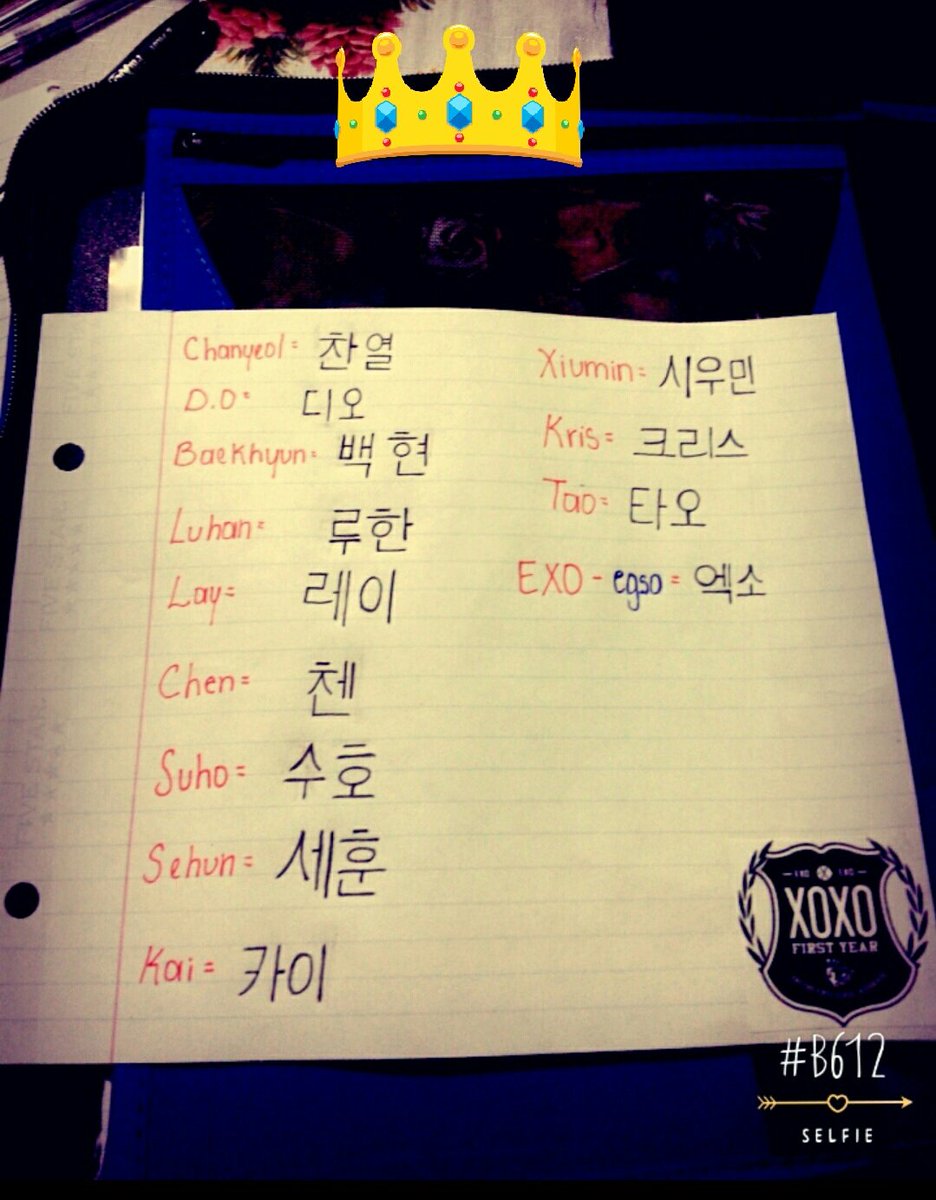 Chanyeol = 찬열
D.O = 디오
Baekhyun = 백현
Luhan = 루한
Lay = 레이
Chen = 첸
Suho = 수호
Sehun = 세훈
Kai = 카이
Xiumin = 시우민
Kris = 크리스
Tao = 타오
EXO - egso = 엑소
XOXO
FIRST YEAR
#B612
SELFIE